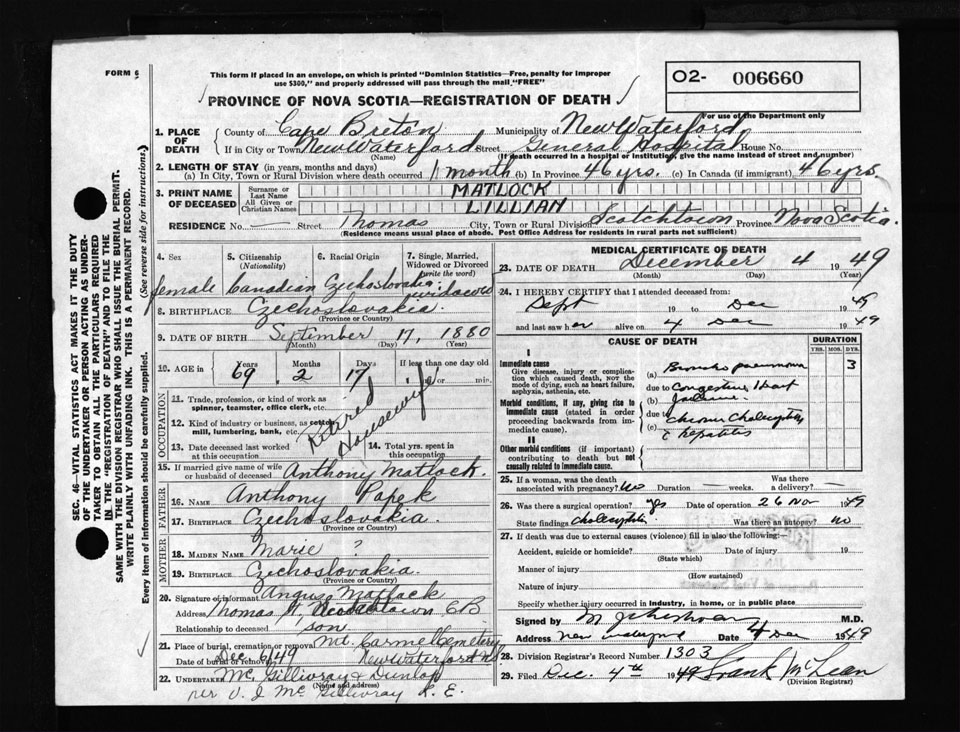 FORM 6
This form if placed in an envelope, on which is printed "Dominion Statistics—Free, penalty for improper
use $300," and properly addressed will pass through the mail "FREE"
PROVINCE OF NOVA SCOTIA—REGISTRATION OF DEATH
O2- 006660
For use of the Department only
SEC. 46—VITAL STATISTICS ACT MAKES IT THE DUTY
OF THE UNDERTAKER OR PERSON ACTING AS UNDER-
TAKER TO OBTAIN ALL THE PARTICULARS REQUIRED
IN THE "REGISTRATION OF DEATH" AND TO FILE THE
SAME WITH THE DIVISION REGISTRAR WHO SHALL ISSUE THE BURIAL PERMIT.
WRITE PLAINLY WITH UNFADING INK. THIS IS A PERMANENT RECORD.
Every item of information should be carefully supplied. (See reverse side for instructions.)
1. PLACE OF DEATH
County of Cape Breton Municipality of New Waterford
If in City or Town New Waterford Street General Hospital House No.
(Name) (If death occurred in a hospital or institution, give the name instead of street and number)
2. LENGTH OF STAY (in years, months and days)
(a) In City, Town or Rural Division where death occurred 1 month (b) In Province 46 yrs. (c) In Canada (if immigrant) 46 yrs.
3. PRINT NAME OF DECEASED
Surname or Last Name MATLOCK
All Given or Christian Names LILLIAN
RESIDENCE No. — Street Thomas City, Town or Rural Division Scotchtown Province Nova Scotia.
(Residence means usual place of abode. Post Office Address for residents in rural parts not sufficient)
4. Sex
female
5. Citizenship (Nationality)
Canadian
6. Racial Origin
Czechoslovakia
7. Single, Married, Widowed or Divorced (write the word)
widowed
8. BIRTHPLACE Czechoslovakia.
(Province or Country)
9. DATE OF BIRTH September 17, 1880
(Month) (Day) (Year)
10. AGE in Years Months Days If less than one day old
69 2 17 hrs. or min.
OCCUPATION
11. Trade, profession, or kind of work as spinner, teamster, office clerk, etc.
12. Kind of industry or business, as cotton mill, lumbering, bank, etc.
Retired Housewife
13. Date deceased last worked at this occupation
14. Total yrs. spent in this occupation
15. If married give name of wife or husband of deceased Anthony Matlock.
FATHER
16. NAME Anthony Papek
17. BIRTHPLACE Czechoslovakia
(Province or Country)
MOTHER
18. MAIDEN NAME Marie ?
19. BIRTHPLACE Czechoslovakia.
(Province or Country)
20. Signature of informant Angus Matlock
Address Thomas St, Scotchtown CB
Relationship to deceased son
21. Place of burial, cremation or removal Mt. Carmel Cemetery
Date of burial or removal Dec 6/49 New Waterford NS
22. UNDERTAKER Mc Gillivray & Dunlop
(Name and address)
per V. J. Mc Gillivray R. E.
MEDICAL CERTIFICATE OF DEATH
23. DATE OF DEATH December 4 1949
(Month) (Day) (Year)
24. I HEREBY CERTIFY that I attended deceased from:
Sept 19 to Dec 1949
and last saw her alive on 4 Dec 1949
CAUSE OF DEATH
DURATION
YRS. MOS. DYS.
I
Immediate cause
Give disease, injury or complication which caused death, NOT the mode of dying, such as heart failure, asphyxia, asthenia, etc.
(a) Broncho pneumonia 3
due to Congestive Heart
(b) failure
Morbid conditions, if any, giving rise to immediate cause (stated in order proceeding backwards from immediate cause).
due to chronic cholecystitis
(c) c hepatitis
II
Other morbid conditions (if important) contributing to death but not causally related to immediate cause.
25. If a woman, was the death associated with pregnancy? no Duration — weeks. Was there a delivery? —
26. Was there a surgical operation? yes Date of operation 26 Nov 1949
State findings cholecystitis. Was there an autopsy? no
27. If death was due to external causes (violence) fill in also the following:—
Accident, suicide or homicide? Date of injury 19
(State which)
Manner of injury
(How sustained)
Nature of injury
Specify whether injury occurred in industry, in home, or in public place
Signed by M. M.D.
Address New Waterford Date 4 Dec 1949
28. Division Registrar's Record Number 1303
29. Filed Dec. 4th 1949 Frank McLean
(Division Registrar)